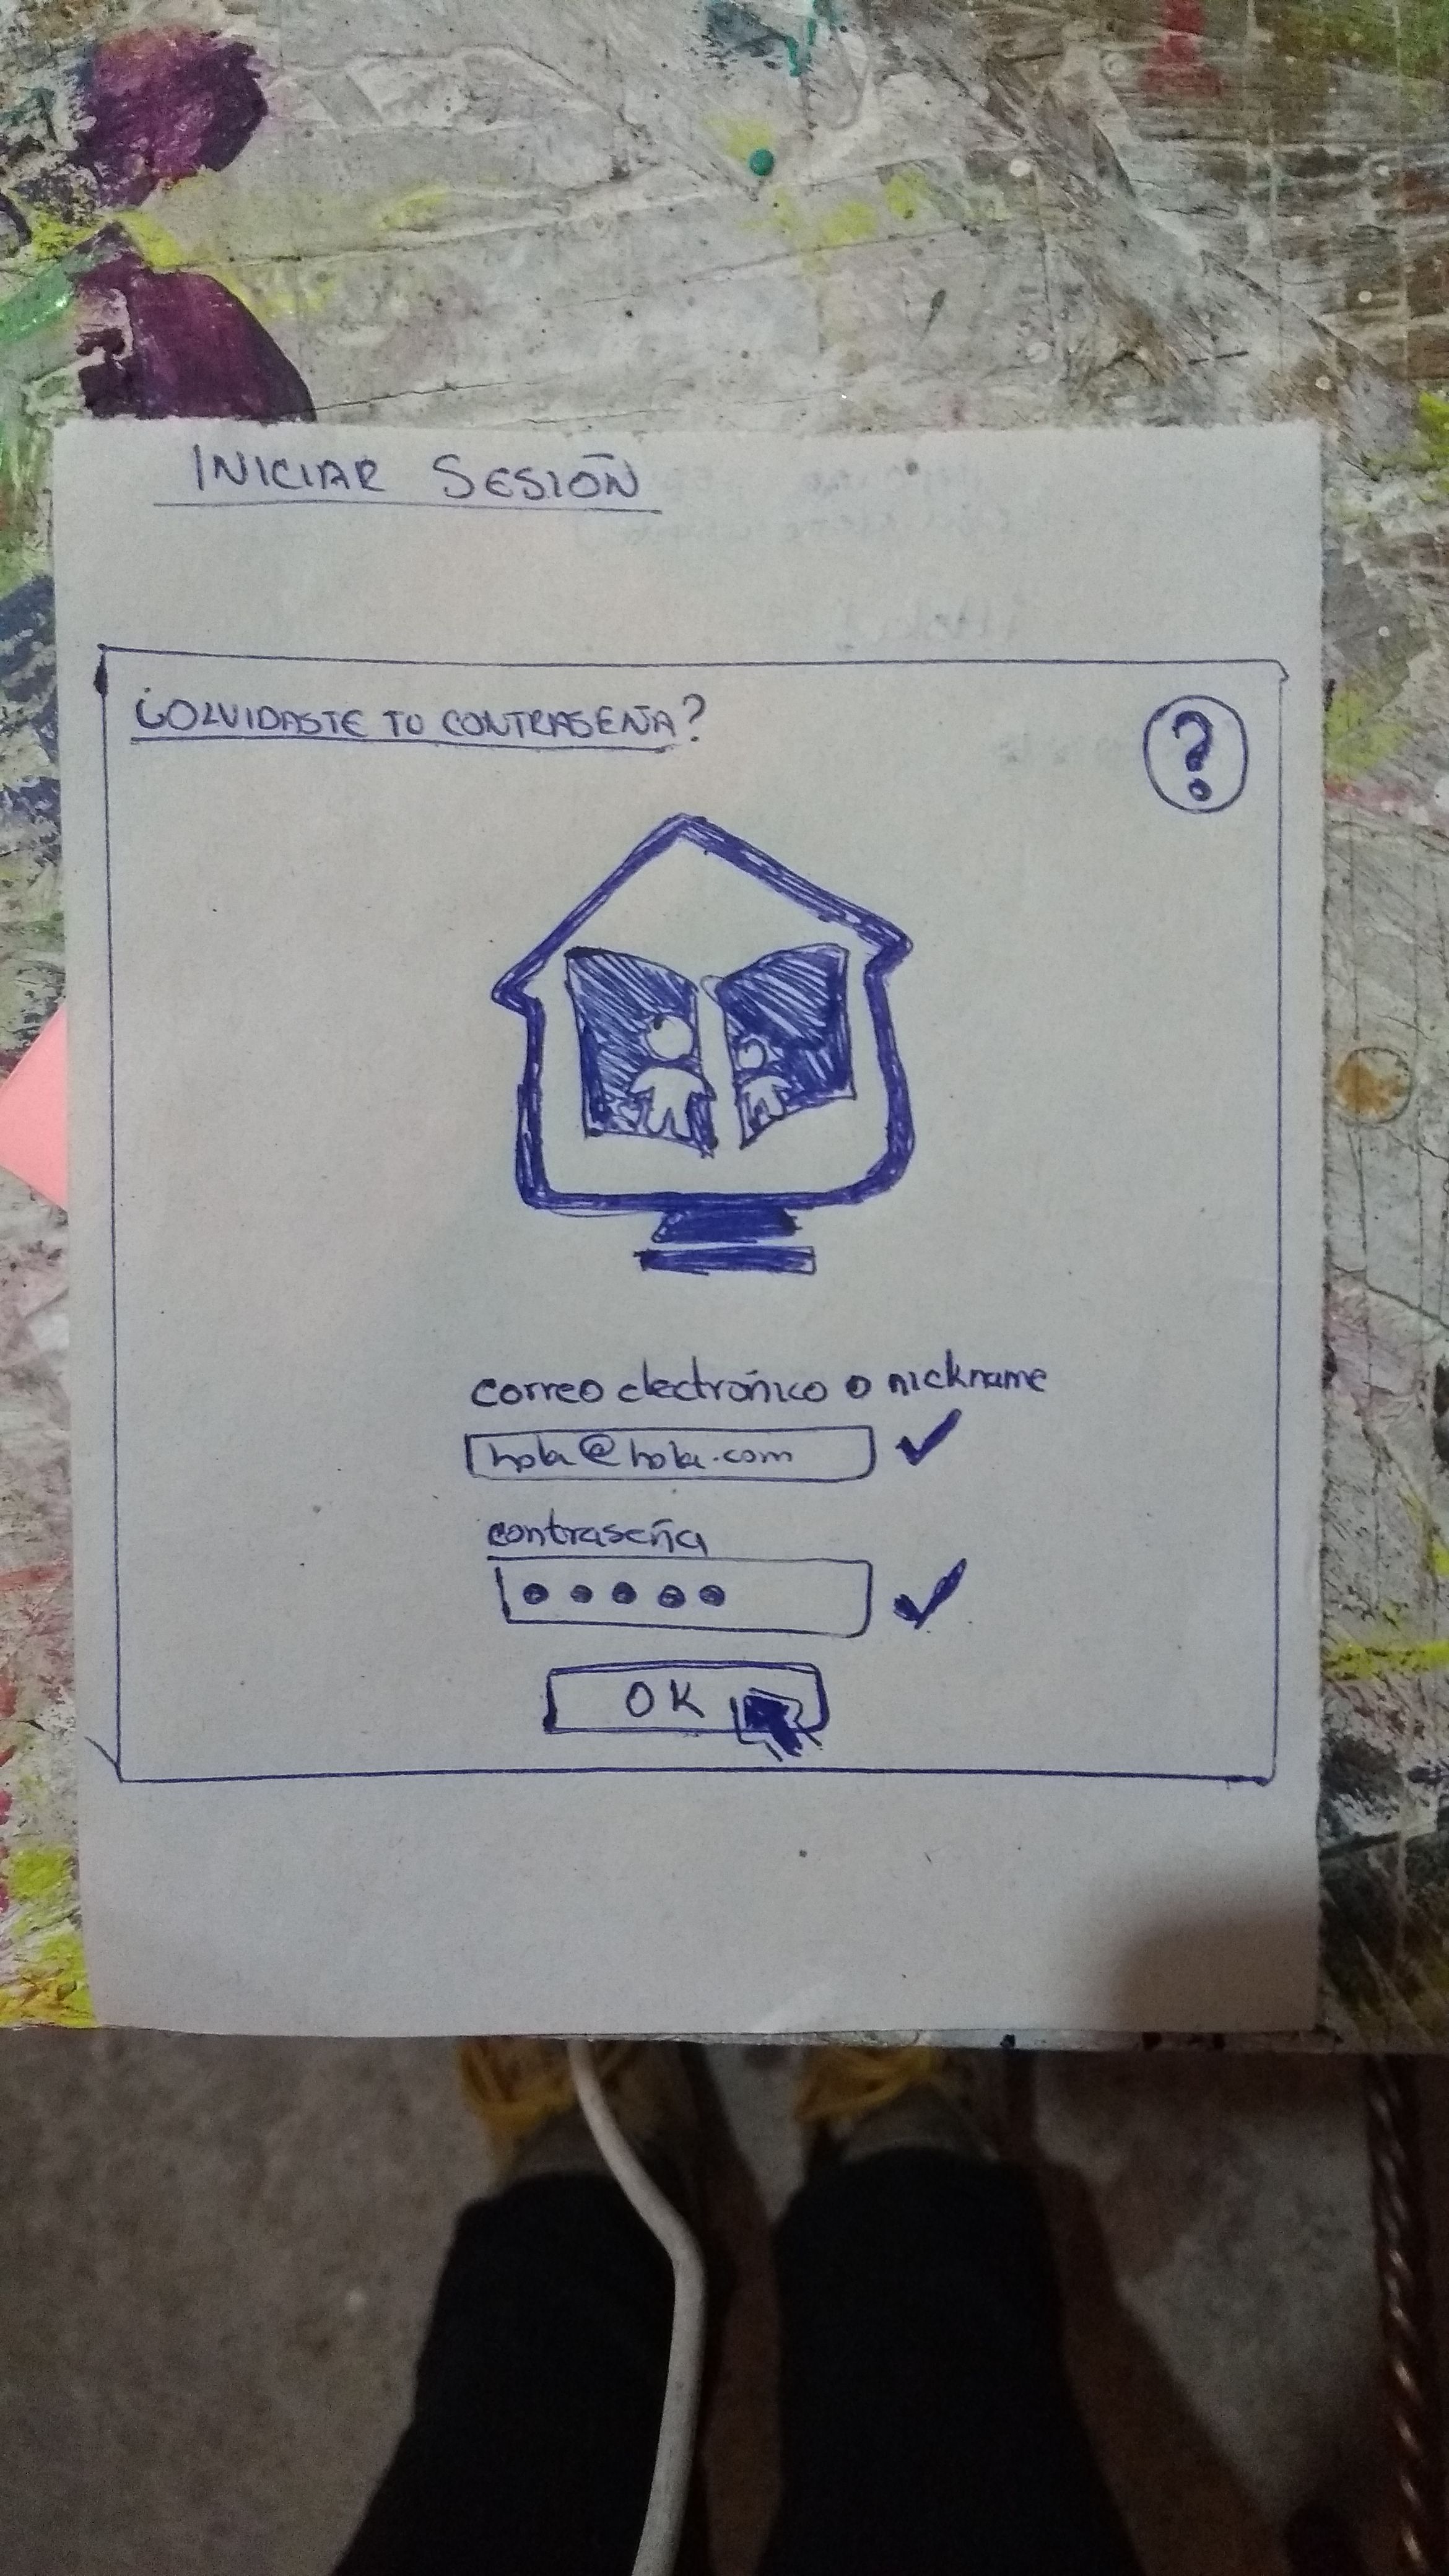 INICIAR SESIÓN
¿OLVIDASTE TU CONTRASEÑA?
?
correo electrónico o nickname
hola@hola.com
contraseña
OK